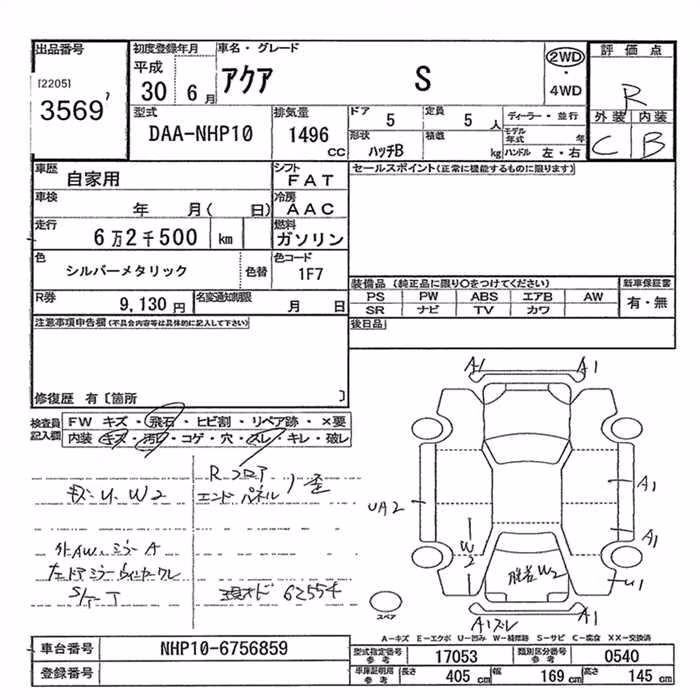 出品番号 初度登録年月 車名・グレード 2WD 評価点
[2205] 平成 アクア S ・ R
3569 30 6月 4WD
型式 排気量 ドア 5 定員 5人 ディーラー・並行 外装 内装
DAA-NHP10 1496 CC 形状 ハッチB 積載 kg モデル年式 年 C B
ハンドル 左・右
車歴 自家用 シフト FAT セールスポイント(正常に機能するものに限ります)
車検 年 月( 日) 冷房 AAC
走行 6万2千500 km 燃料 ガソリン
色 シルバーメタリック 色替 色コード 1F7
装備品 (純正品に限り○をつけてください) 新車保証書
PS PW ABS エアB AW 有・無
SR ナビ TV カワ
R券 9,130円 名変通知期限 月 日
後日品
注意事項申告欄(不具合内容等は具体的に記入して下さい)
修復歴 有〔箇所 〕
検査員記入欄 FW キズ・飛石・ヒビ割・リペア跡・×要
内装 キズ・汚レ・コゲ・穴・スレ・キレ・破レ
A1 A1
Rフロア
キズ U W2 エンドパネル
UA2 A1
A1
W2
外AW ミラーA
左ドアミラーウィンカークレ
脱着W2 U1
現オド 62554
スペア
A1スレ A1
A-キズ E-エクボ U-凹み W-補修跡 S-サビ C-腐食 XX-交換済
車台番号 NHP10-6756859
型式指定番号 参考 17053 類別区分番号 参考 0540
登録番号
車庫証明用 参考 長さ 405 cm 幅 169 cm 高さ 145 cm